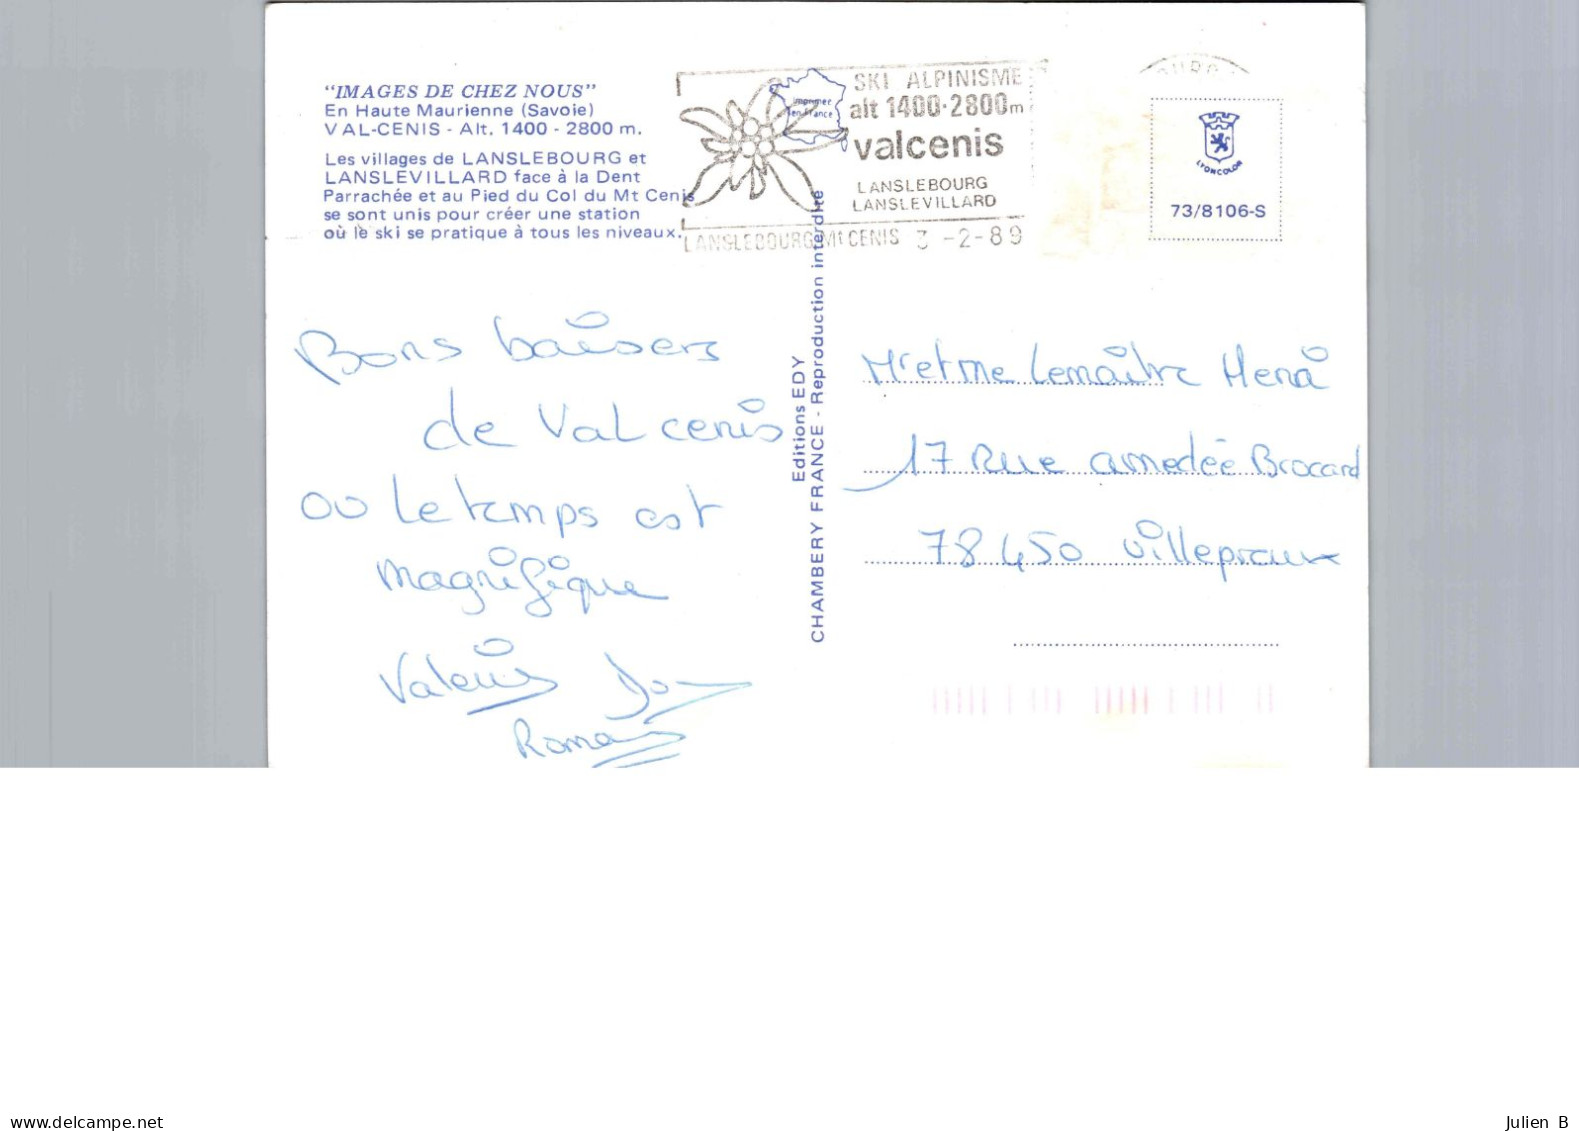 "IMAGES DE CHEZ NOUS"
En Haute Maurienne (Savoie)
VAL-CENIS - Alt. 1400 - 2800 m.
Les villages de LANSLEBOURG et
LANSLEVILLARD face à la Dent
Parrachée et au Pied du Col du Mt Cenis
se sont unis pour créer une station
où le ski se pratique à tous les niveaux.
Imprimer
en France
SKI ALPINISME
alt 1400·2800m
valcenis
LANSLEBOURG
LANSLEVILLARD
LANSLEBOURG Mt CENIS 3 -2-89
LYONCOLOR
73/8106-S
Editions EDY
CHAMBERY FRANCE - Reproduction interdite
Bons baisers
de Val cenis
ou le temps est
magnifique
Romain
Mr et Me Lemaître Henri
17 Rue amedée Brocard
78450 Villepreux
www.delcampe.net
Julien B